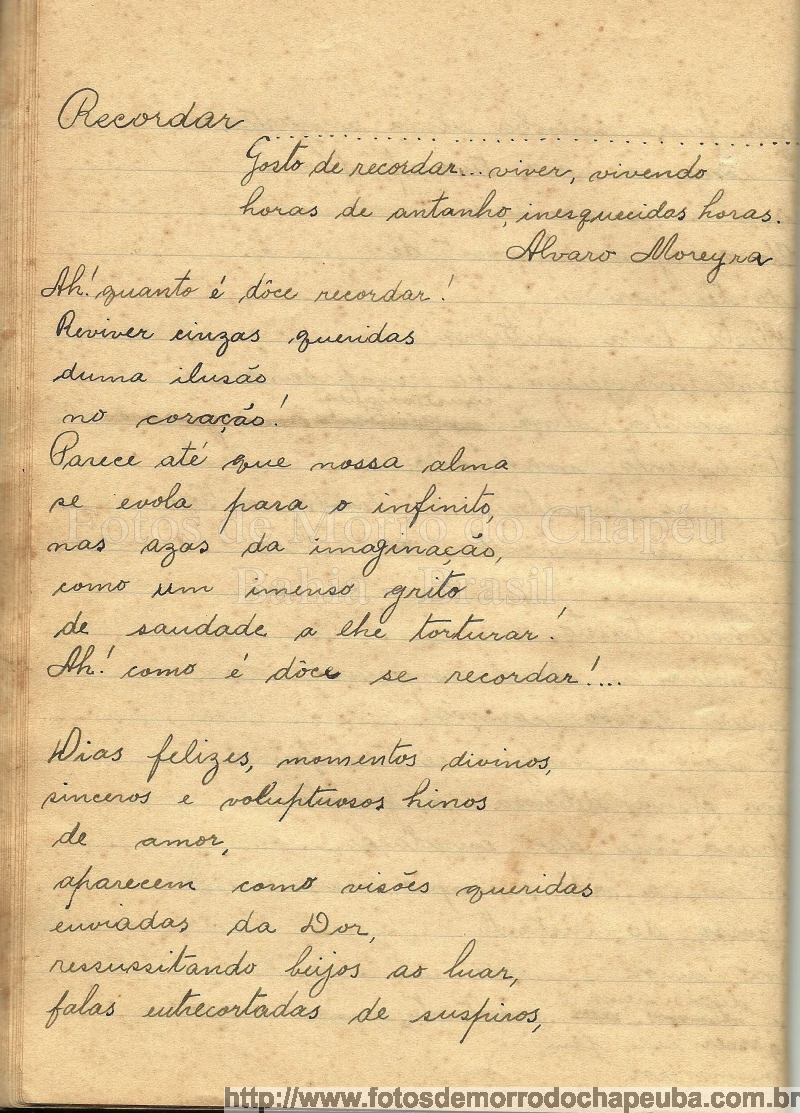 Recordar
Gosto de recordar... viver, vivendo
horas de antanho, inesquecidas horas.
Alvaro Moreyra
Ah! quanto é dôce recordar!
Reviver cinzas queridas
duma ilusão
no coração!
Parece até que nossa alma
se evola para o infinito,
nas azas da imaginação,
como um imenso grito
de saudade a lhe torturar!
Ah! como é dôce se recordar!...
Dias felizes, momentos divinos,
sinceros e voluptuosos hinos
de amor,
aparecem como visões queridas
enviadas da Dor,
ressussitando beijos ao luar,
falas entrecortadas de suspiros,
Fotos de Morro do Chapéu
Bahia Brasil
http://www.fotosdemorrodochapeuba.com.br